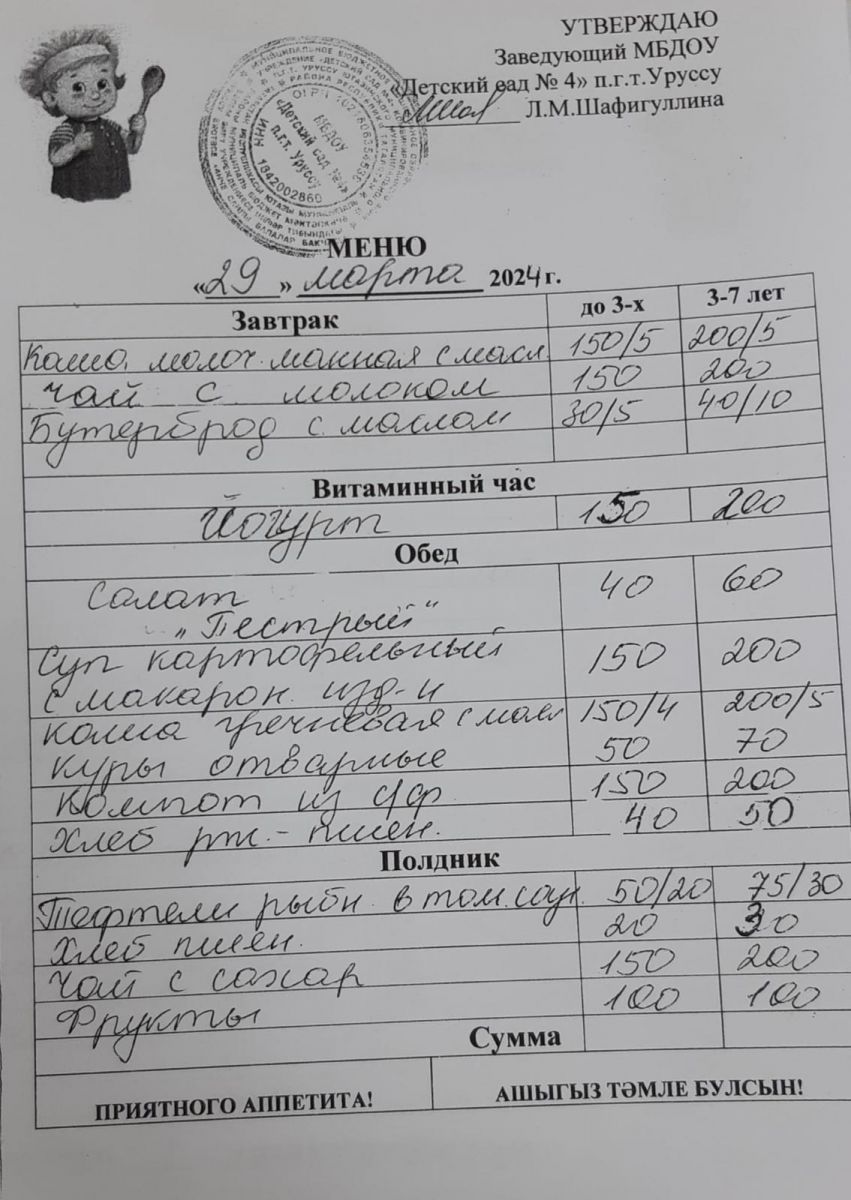 УТВЕРЖДАЮ
Заведующий МБДОУ
«Детский сад № 4» п.г.т.Уруссу
Л.М.Шафигуллина
МБДОУ
«Детский сад №4»
п.г.т. Уруссу
1842002860
МЕНЮ
«29» марта 2024 г.
Завтрак до 3-х 3-7 лет
Каша молоч. манная с масл. 150/5 200/5
Чай с молоком 150 200
Бутерброд с маслом 30/5 40/10
Витаминный час
Йогурт 150 200
Обед
Салат 40 60
„Пестрый“
Суп картофельный 150 200
с макарон. изд-и
Каша гречневая с масл 150/4 200/5
Куры отварные 50 70
Компот из с/ф 150 200
Хлеб рж.- пшен. 40 50
Полдник
Тефтели рыбн. в том. соус. 50/20 75/30
Хлеб пшен. 20 30
Чай с сахар 150 200
Фрукты 100 100
Сумма
ПРИЯТНОГО АППЕТИТА! АШЫГЫЗ ТӘМЛЕ БУЛСЫН!